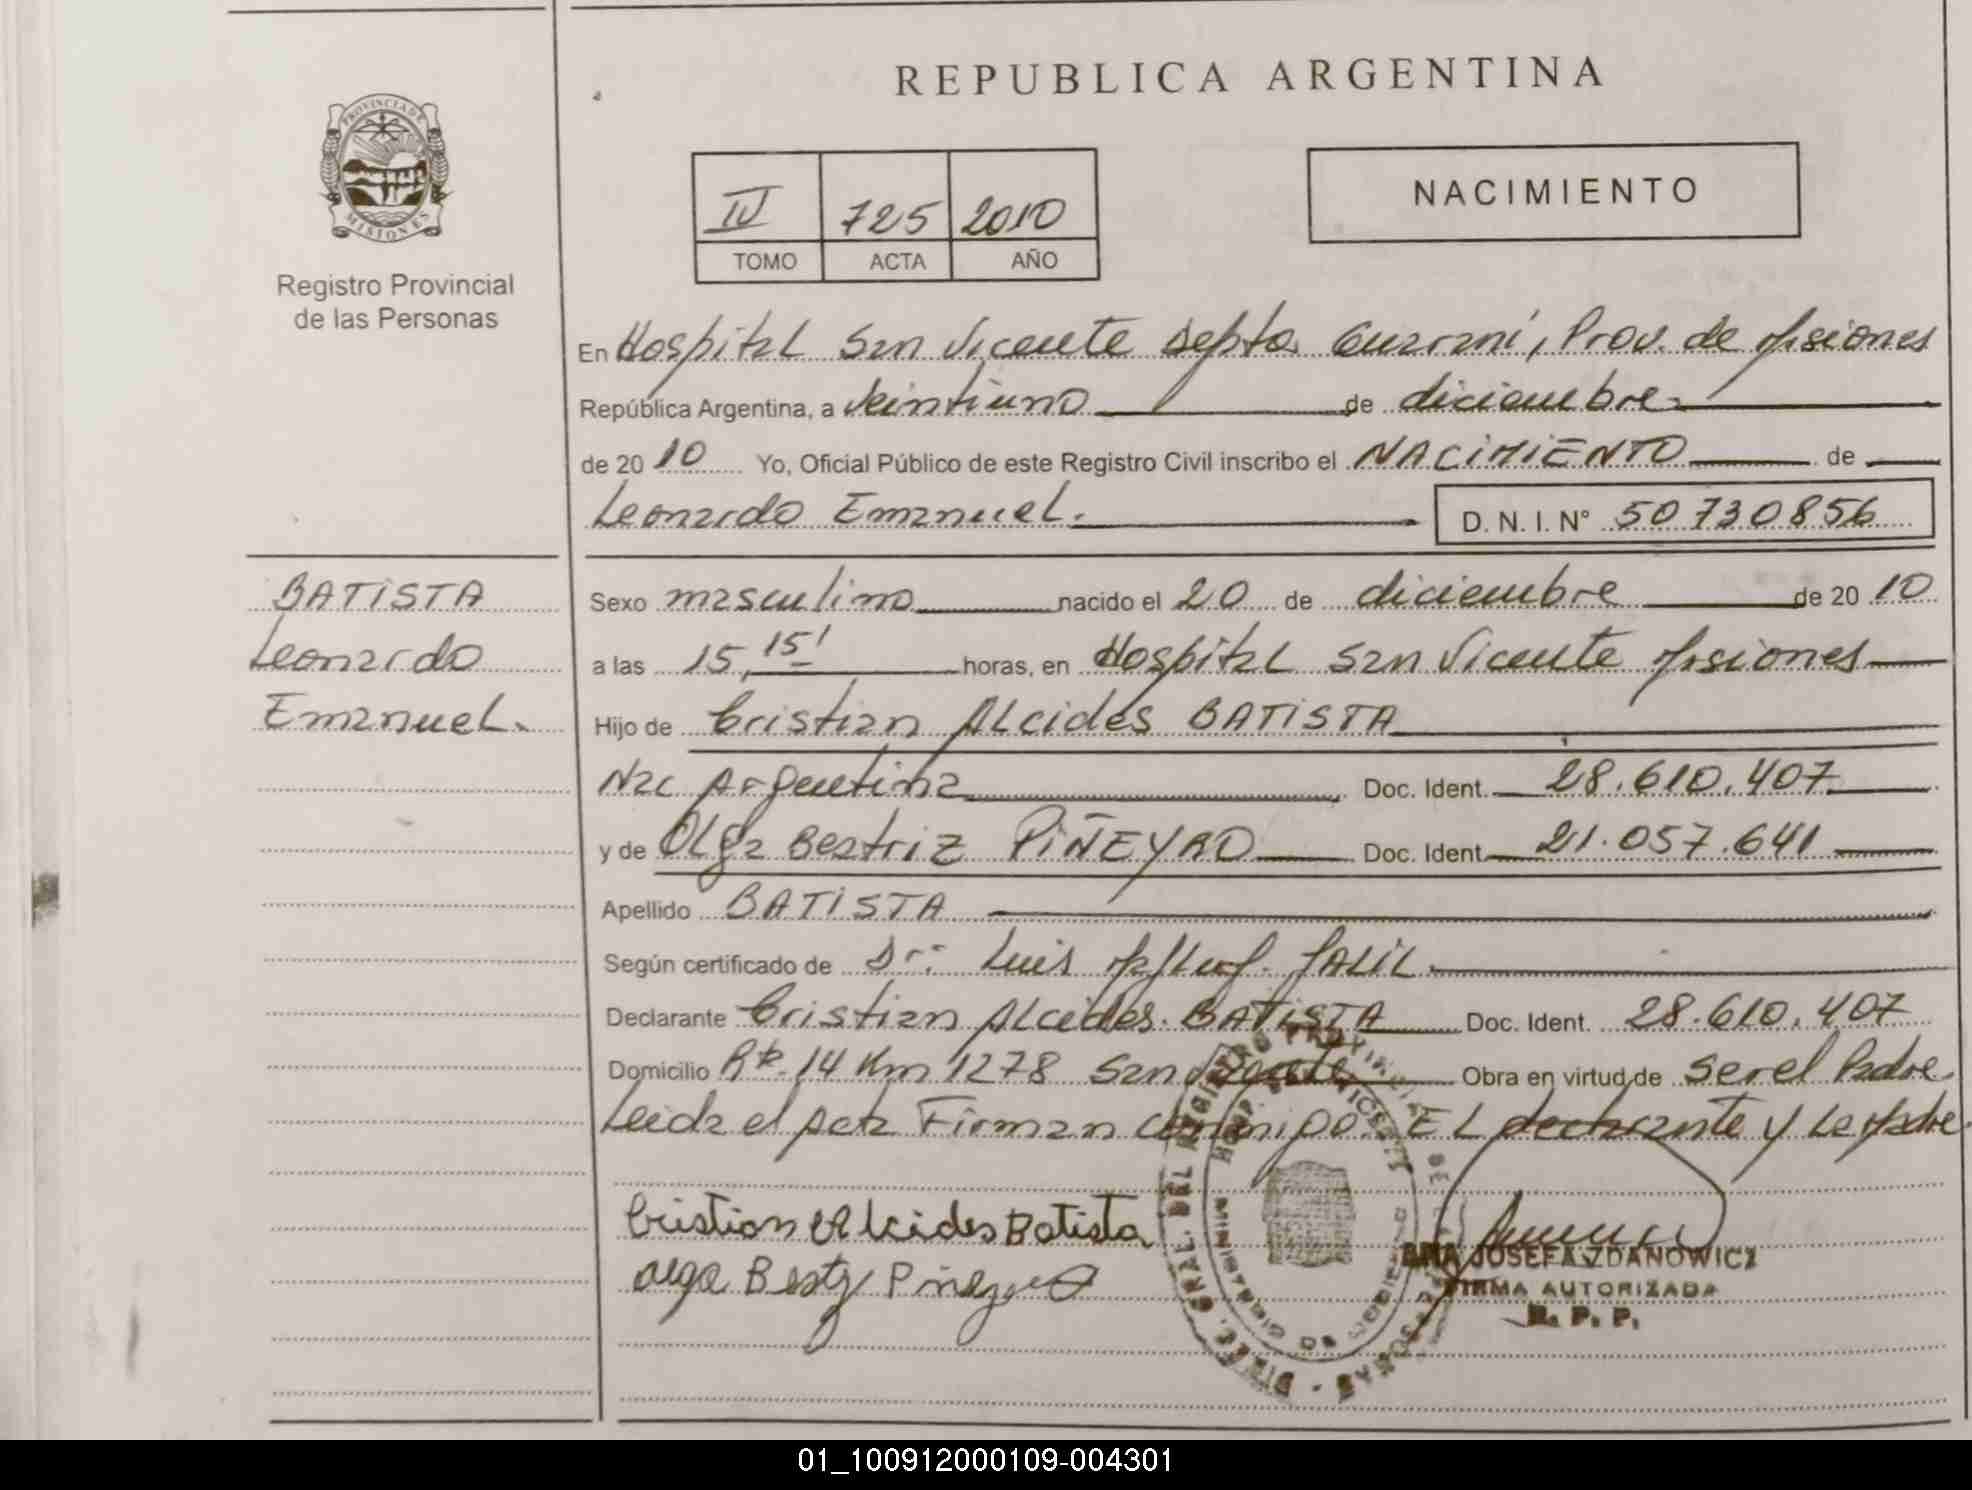 REPUBLICA ARGENTINA
PROVINCIA DE
MISIONES
Registro Provincial
de las Personas
IV 725 2010
TOMO ACTA AÑO
NACIMIENTO
En Hospital San Vicente Depto Guaraní, Prov. de Misiones
República Argentina, a Veintiuno de diciembre
de 2010 Yo, Oficial Público de este Registro Civil inscribo el NACIMIENTO de
Leonardo Emanuel. D. N. I. N° 50730856
BATISTA
Leonardo
Emanuel.
Sexo masculino nacido el 20 de diciembre de 2010
a las 15,15' horas, en Hospital San Vicente Misiones
Hijo de Cristian Alcides BATISTA
Nac Argentina Doc. Ident. 28.610.407
y de Olga Beatriz PIÑEYRO Doc. Ident. 21.057.641
Apellido BATISTA
Según certificado de Dr: Luis JALIL
Declarante Cristian Alcides BATISTA Doc. Ident. 28.610.407
Domicilio Rta. 14 Km 1278 San Vicente Obra en virtud de ser el Padre.
Leida el Acta Firman conmigo. EL declarante y La Madre
Cristian Alcides Batista
Olga Beatz Piñeyro
ANA JOSEFA ZDANOWICZ
FIRMA AUTORIZADA
R. P. P.
01_100912000109-004301